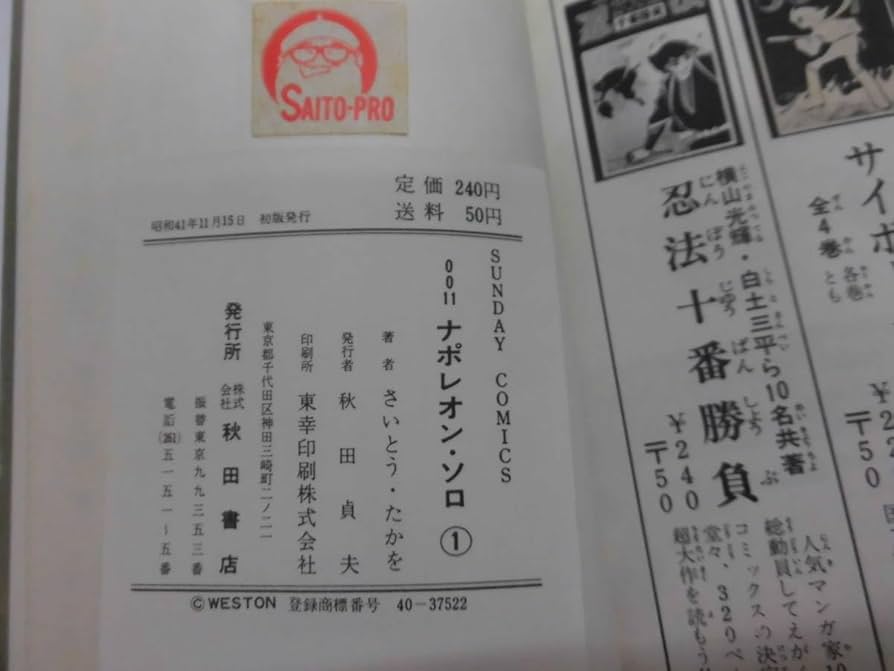 SAITO-PRO
定価 240円
送料 50円
昭和41年11月15日 初版発行
SUNDAY COMICS
0011 ナポレオン・ソロ ①
著者 さいとう・たかを
発行者 秋田貞夫
印刷所 東幸印刷株式会社
東京都千代田区神田三崎町二ノ二一
発行所 株式会社 秋田書店
振替東京九九三五三番
電話(261)五一五一～五番
©WESTON 登録商標番号 40-37522
サイボ
全4巻 各巻とも
〒50
横山光輝・白土三平ら10名共著
忍法十番勝負
¥240
〒50
人気マンガ家
総動員してえが
コミックスの決
堂々、320ペ
超大作を読もう